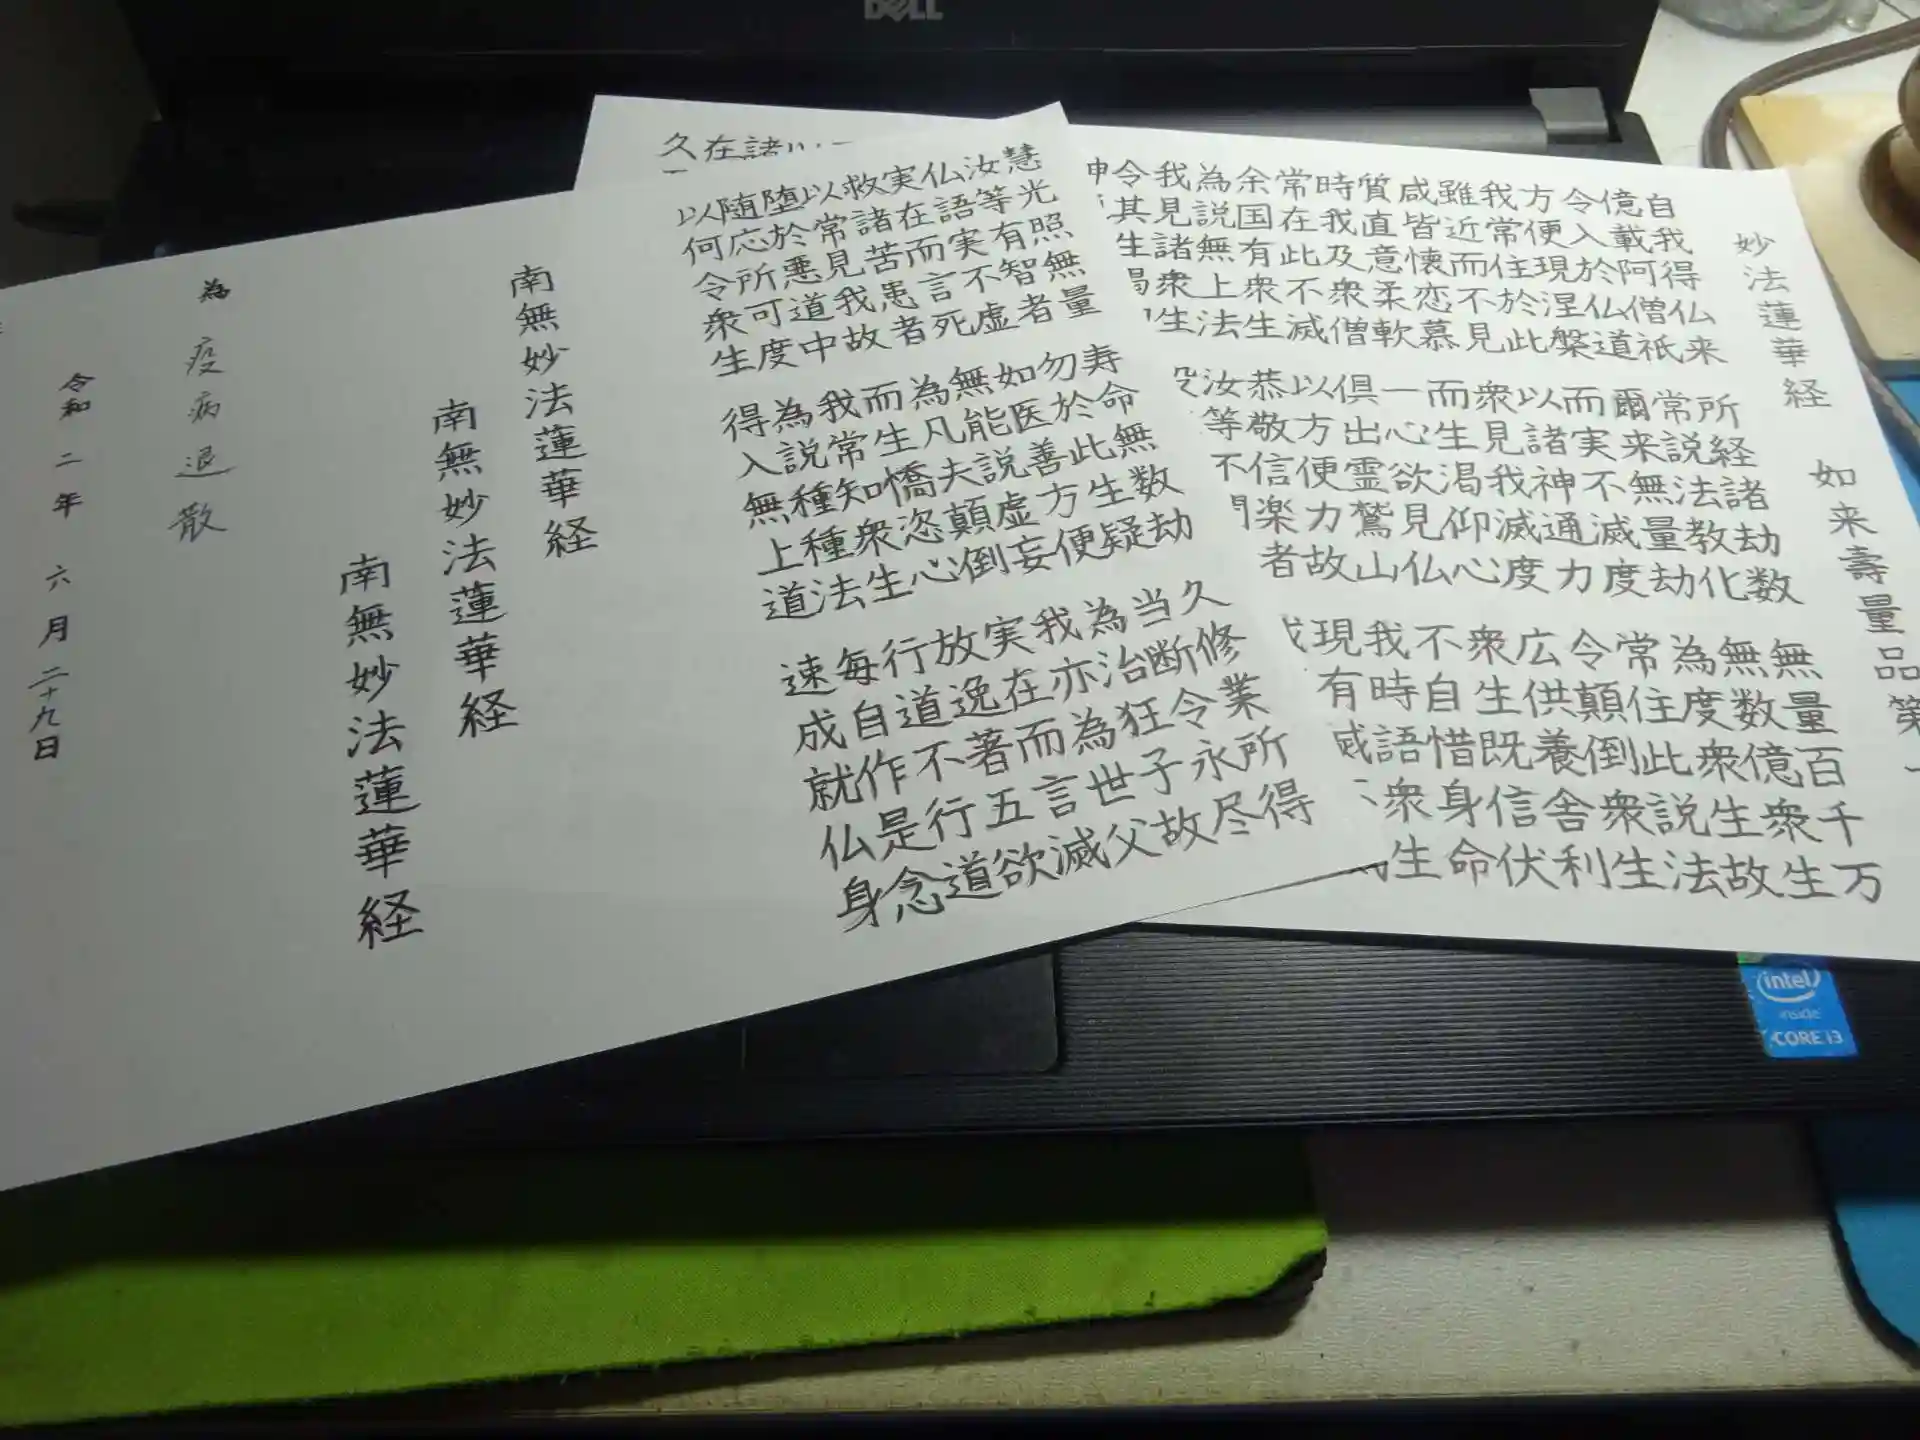 妙法蓮華経
如来壽量品第
自我得仏来 所経諸劫数 無量百千万
億載阿僧祇 常説法教化 無数億衆生
令入於仏道 爾来無量劫 為度衆生故
方便現涅槃 而実不滅度 常住此説法
我常住於此 以諸神通力 令顛倒衆生
雖近而不見 衆見我滅度 広供養舎利
咸皆懐恋慕 而生渇仰心 衆生既信伏
質直意柔軟 一心欲見仏 不自惜身命
時我及衆僧 倶出霊鷲山 我時語衆生
常在此不滅 以方便力故 現有
余国有衆生 恭敬信楽者
為説無上法 汝等不
我見諸衆生
令其
久在諸
慧光照無量 寿命無数劫 久修業所得
汝等有智者 勿於此生疑 当断令永尽
仏語実不虚 如医善方便 為治狂子故
実在而言死 無能説虚妄 我亦為世父
救諸苦患者 為凡夫顛倒 実在而言滅
以常見我故 而生憍恣心 放逸著五欲
堕於悪道中 我常知衆生 行道不行道
随応所可度 為説種種法 毎自作是念
以何令衆生 得入無上道 速成就仏身
南無妙法蓮華経
南無妙法蓮華経
南無妙法蓮華経
為 疫病退散
令和二年 六月二十九日
DELL
intel
inside
CORE i3